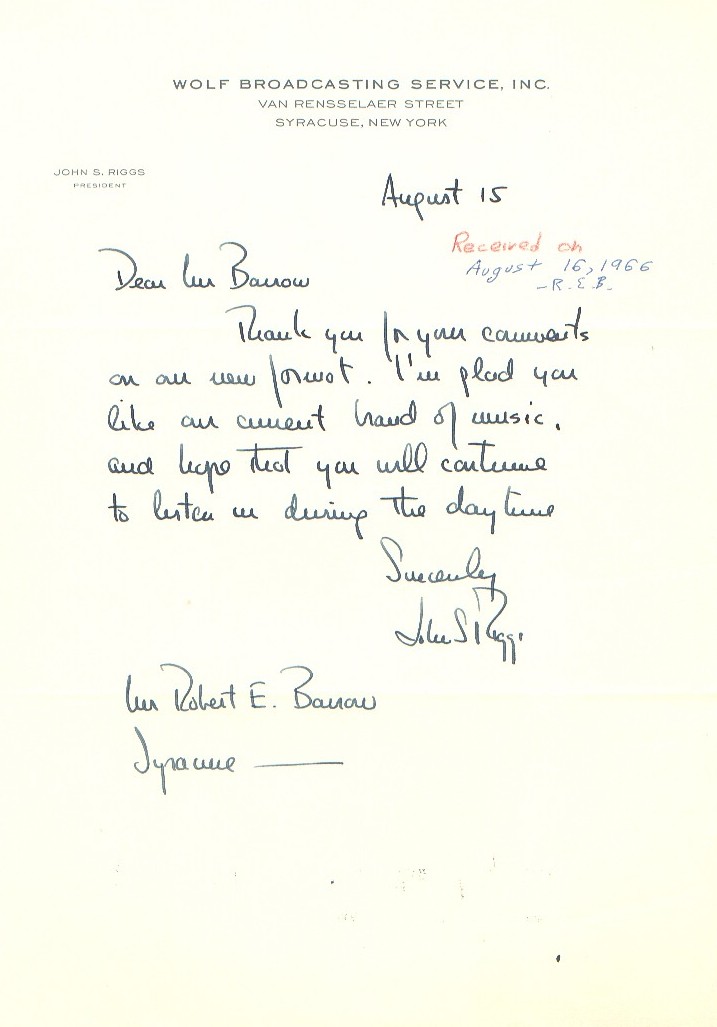 WOLF BROADCASTING SERVICE, INC.
VAN RENSSELAER STREET
SYRACUSE, NEW YORK
JOHN S. RIGGS
PRESIDENT
August 15
Received on
August 16, 1966
- R.E.B.
Dear Mr Barrow
Thank you for your comments
on our new format. I'm glad you
like our current brand of music,
and hope that you will continue
to listen in during the daytime
Sincerely
John S Riggs
Mr Robert E. Barrow
Syracuse